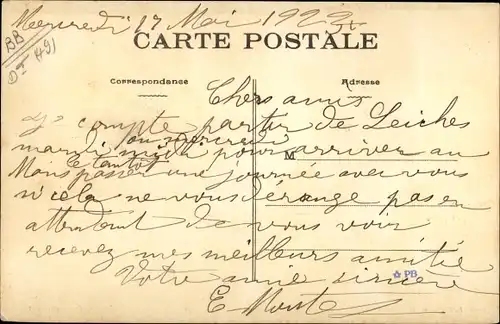 Mercredi 17 Mai 1922
BB
Dt 491
CARTE POSTALE
Correspondance
Adresse
Chers amis
Je compte partir de Leiches
ou mercredi
mardi midi pour arriver au
M
et tantot
Mans passer une journée avec vous
si cela ne vous dérange pas en
attendant de vous voir
recevez mes meilleurs amitié
Votre amie sincère
PB
E